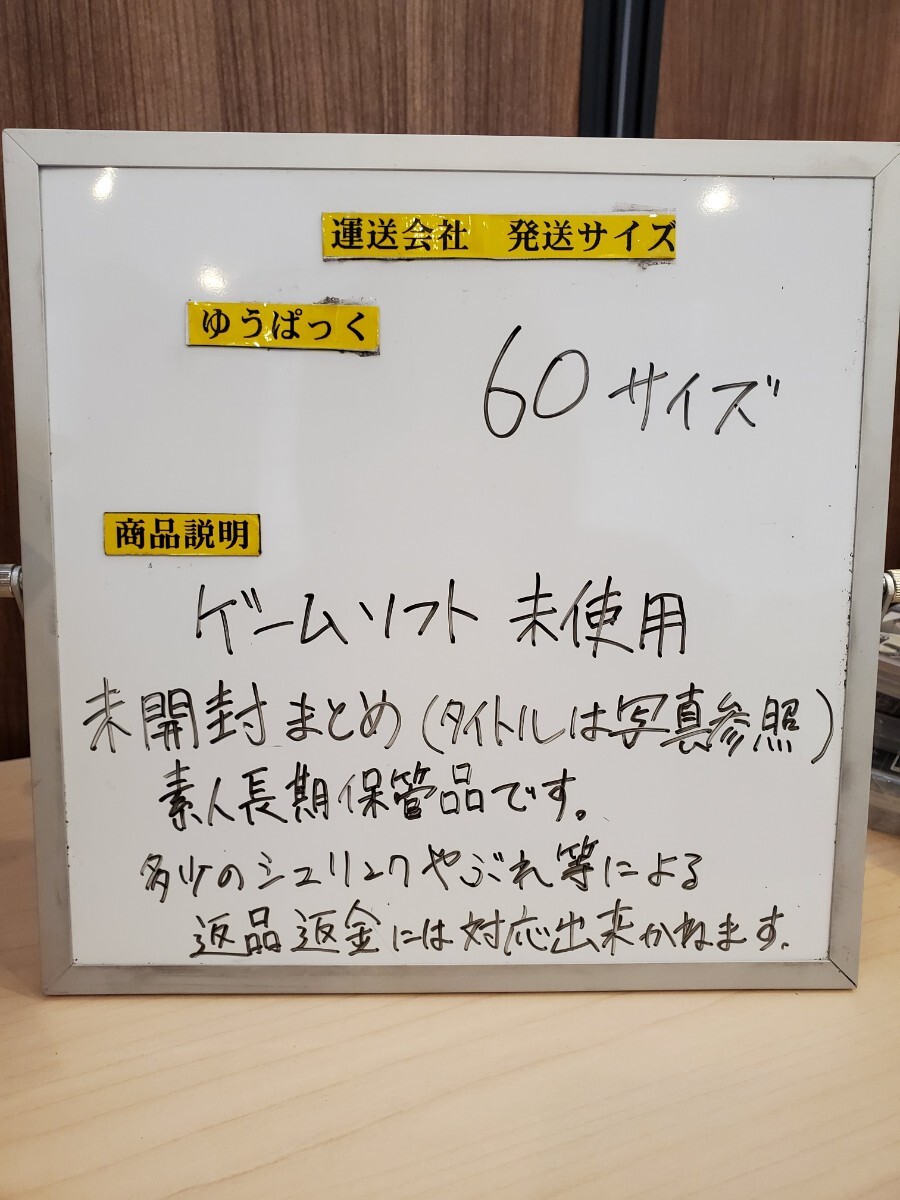 運送会社　発送サイズ
ゆうぱっく
60サイズ
商品説明
ゲームソフト 未使用
未開封まとめ(タイトルは写真参照)
素人長期保管品です。
多少のシュリンクやぶれ等による
返品返金には対応出来かねます。